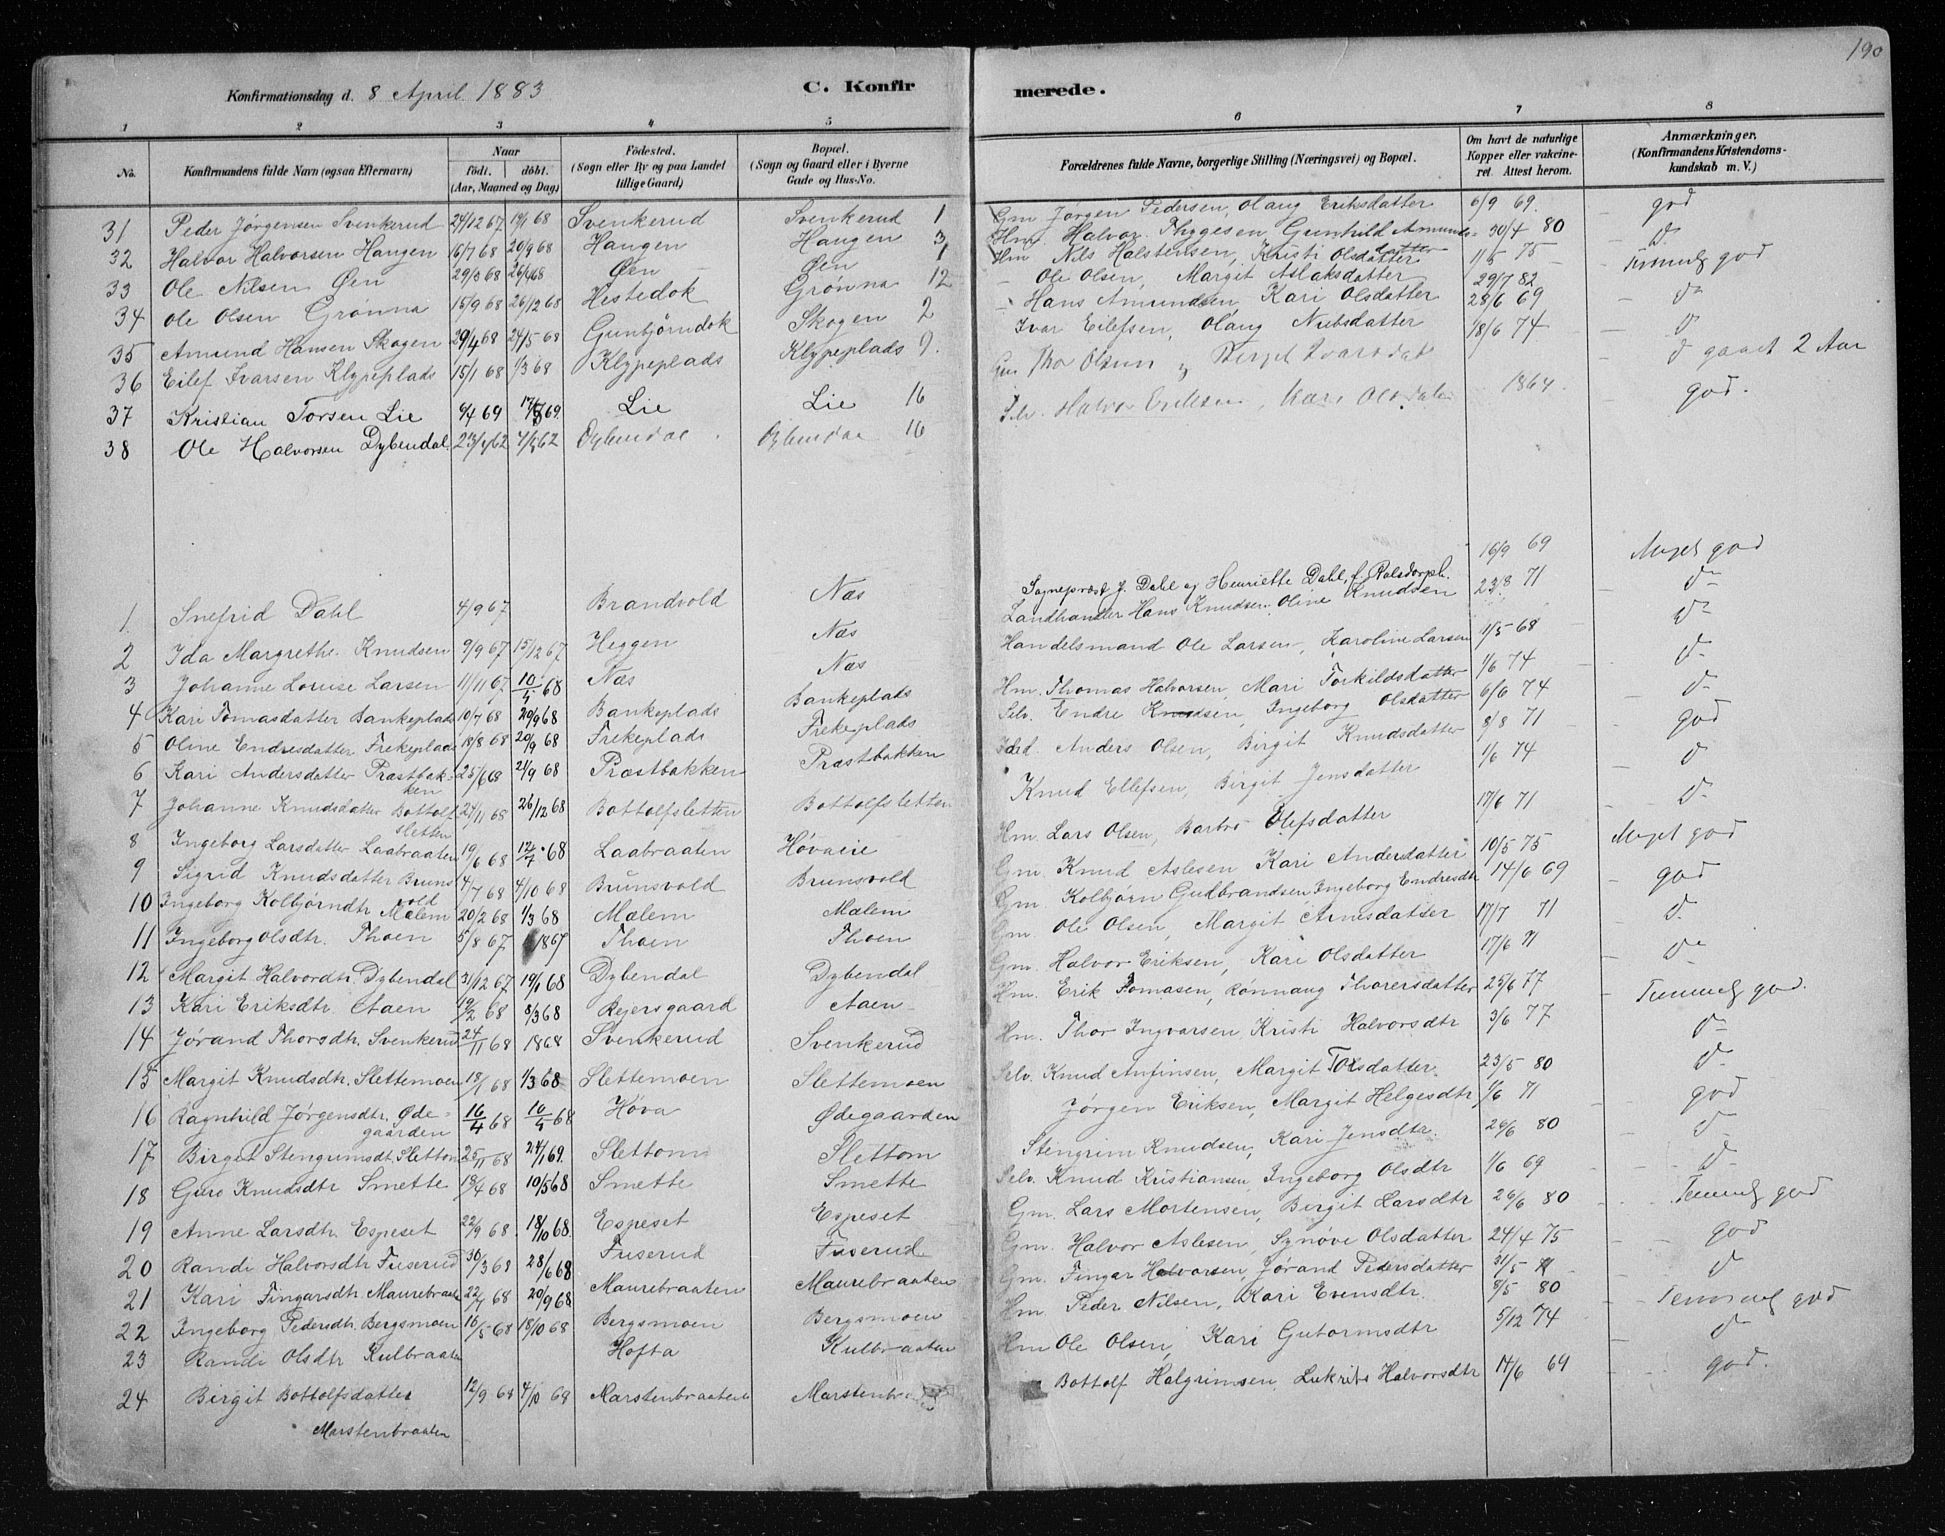 190
Konfirmationsdag d. 8 April 1883 C. Konfirmerede.
1 2 3 4 5 6 7 8
No. Konfirmandens fulde Navn (ogsaa Efternavn) Naar født. døbt. (Aar, Maaned og Dag) Fødested. (Sogn eller By og paa Landet tillige Gaard) Bopæl. (Sogn og Gaard eller i Byerne Gade og Hus-No. Forældrenes fulde Navne, borgerlige Stilling (Næringsvei) og Bopæl. Om havt de naturlige Kopper eller vakcineret. Attest herom. Anmærkninger. (Konfirmandens Kristendomskundskab m. V.)
31 Peder Jørgensen Svenkerud 24/12 67 19/1 68 Svenkerud Svenkerud 1 Gm Jørgen Pedersen, Olaug Eriksdatter 6/9 69. god
32 Halvor Halvorsen Haugen 16/7 68 20/9 68 Haugen Haugen 3 Hm. Halvor Thygesen Gunhild Amunds- 30/4 80 d-
33 Ole Nilsen Øen 29/3 68 26/4 68 Øen Øen 1 Hm Nils Halstensen, Kristi Olsdatter 11/5 75 Temmelg god
34 Ole Olsen Grønna 15/9 68 26/12 68 Hestedok Grønna 12 Ole Olsen, Margit Aslaksdatter 29/7 82 d-
35 Amund Hansen Skogen 29/4 68 24/5 68 Gunbjørndok Skogen 2 Hans Amundsen Kari Olsdatter 28/6 69 d-
36 Eilef Ivarsen Klypeplads 15/1 68 1/3 68 Klypeplads Klypeplads 9. Ivar Eilefsen, Olaug Nubsdatter 18/6 74 d gaaet 2 Aar
37 Kristian Torsen Lie 9/4 69 69. Lie Lie 16 Gm Thor Olsen og Birgit Ivarsdat god.
38 Ole Halvorsen Dybendal. 62 62 Dybendal Dybendal 16 Selv. Halvor Eriksen, Kari Olsdater 1864
1. Snefrid Dahl 4/9 67 Brandvold Næs Sognepræst J. Dahl og Henriette Dahl, f. Rolsdorph. 16/9 69 Meget god
2 Ida Margrethe Knudsen 9/9 67 15/12 67 Heggen Næs Landhandler Hans Knudsen. Oline Knudsen 23/8 71 d-
3 Johanne Louise Larsen 11/11 67 10/5 68 Næs Næs Handelsmand Ole Larsen, Karoline Larsen 11/5 68 d-
4 Kari Tomasdatter Bankeplads 10/7 68 20/9 68 Bankeplads Bankeplads Hm. Thomas Halvorsen, Mari Torkildsdatter 1/6 74 d-
5 Oline Endresdatter Frekeplads 18/8 68 20/9 68 Frekeplads Frekeplads Selv. Endre Knudsen, Ingeborg Olsdatter 6/6 74 d-
6 Kari Andersdatter Præstbakken 25/6 68 21/9 68 Præstbakken Præstbakken Anders Olsen, Birgit Knudsdatter 8/8 71 god
7 Johanne Knudsdatter Bottolfsletten 24/11 68 26/12 68 Bottolfsletten Bottolfsletten Knud Ellefsen, Birgit Jensdatter 1/6 74 d
8 Ingeborg Larsdatter Laabraaten 19/6 68 12/7 68 Laabraaten Høvaeie Hm. Lars Olsen, Barbro Olefsdatter 17/6 71 d-
9 Sigrid Knudsdatter Brunsvold 14/7 68 4/10 68 Brunsvold Brunsvold Gm. Knud Aslesen Kari Andersdatter 10/5 75 Meget god
10 Ingeborg Kolbjørndtr Mælem 20/2 68 1/3 68 Mælem Mælem Gm. Kolbjørn Gudbrandsen Ingeborg Endresdtr 14/6 69 god
11 Ingeborg Olsdtr. Thoen 5/8 67 1867 Thoen Thoen Gm. Ole Olsen, Margit Arnesdatter 17/7 71 d.
12 Margit Halvordtr. Dybendal 31/12 67 19/1 68 Dybendal Dybendal Gm. Halvor Eriksen, Kari Olsdatter 17/6 71 d-
13 Kari Eriksdtr. Aaen 19/2 68 8/3 68 Rejersgaard Aaen Hm. Erik Tomasen, Rønnaug Thorersdatter 25/6 77 Temmelg god.
14 Jørand Thorsdtr. Svenkerud 24/11 68 1868 Svenkerud Svenkerud Hm. Thor Ingvarsen Kristi Halvorsdtr 3/6 77 d-
15 Margit Knudsdtr. Slettemoen 18/1 68 1/3 68 Slettemoen Slettemoen Selv. Knud Anfinsen, Margit Tolsdatter. 23/5 80 d-
16 Ragnhild Jørgensdtr. Ødegaarden 16/4 68 10/5 68 Hova Ødegaarden Jørgen Eriksen, Margit Helgesdtr 1/6 71 god
17 Birgit Stengrimsdt. Slettom 25/11 68 24/1 69. Slettom Slettom Stengrim Knudsen, Kari Jensdtr. 29/6 80 d-
18 Guro Knudsdtr Smette 13/4 68 10/5 68 Smette Smette Selv. Knud Kristiansen, Ingeborg Olsdtr 1/6 69 d-
19 Anne Larsdtr. Espeset 22/9 68 18/10 68. Espeset Espeset Gm. Lars Mortensen, Birgit Larsdtr 29/6 80 Temmelg god
20 Randi Halvorsdtr Fuserud 30/3 68 28/6 68 Fuserud Fuserud Gm. Halvor Aslesen, Synøve Olsdatter 24/4 75 god
21 Kari Fingarsdtr. Maurebraaten 22/7 68 20/9 68 Maurebraaten Maurebraaten Gm. Fingar Halvorsen, Jørand Pedersdatter 31/5 d
22 Ingeborg Pedersdtr. Bergsmoen 16/5 68 18/10 68 Bergsmoen Bergsmoen Hm. Peder Nilsen, Kari Evensdtr. 8/5 80 Temmelg god
23 Randi Olsdtr Kulbraaten Hofta Kulbraaten Hm Ole Olsen, Kari Gutormsdtr 5/12 74 d
24 Birgit Bottolfsdatter Marstenbraaten 12/9 68 4/10 68 Marstenbraaten Marstenbraaten Bottolf Halgrimsen, Lukrits Halvorsdtr 14/6 69 god.